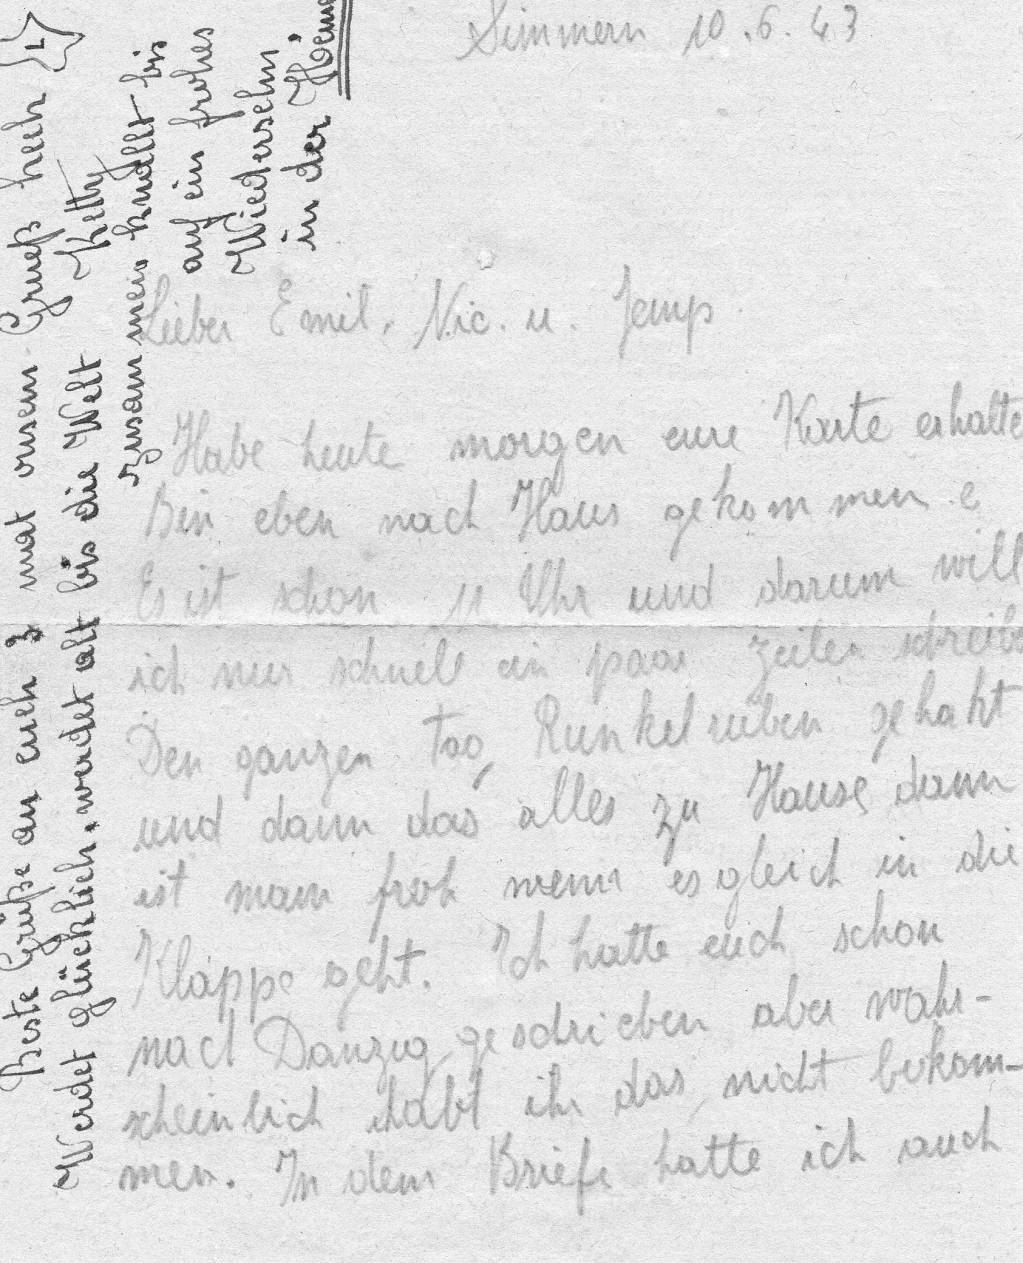 Simmern 10.6.43
Lieber Emil, Nic. u. Jemp.
Habe heute morgen eure Karte erhalte
Bin eben nach Haus gekommen.
Es ist schon 11 Uhr und darum will
ich nur schnell ein paar Zeilen schreibe
Den ganzen Tag Runkelrüben gehakt
und dann das alles zu Hause, dann
ist man froh wenn es gleich in die
Klappe geht. Ich hatte euch schon
nach Danzig geschrieben aber wahr-
scheinlich habt ihr das nicht bekom-
men. In dem Briefe hatte ich auch
Beste Grüße an euch 3 mat ousem Grueß
Ketty
Werdet glücklich, werdet alt bis die Welt
zusammen knallt bis
auf ein frohes
Wiedersehn
in der